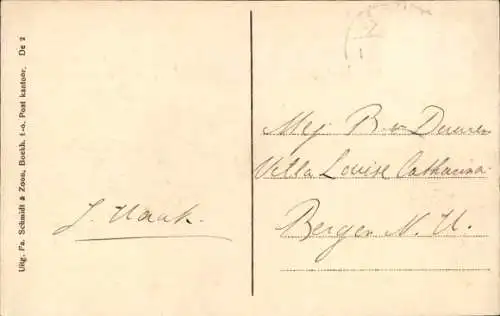 Uitg. Fa. Schmidt & Zoon, Boekh. t-o. Post kantoor. De 2
J. Hauk.
Mej B. v. Duuren
Villa Louise Catharina
Bergen N. H.